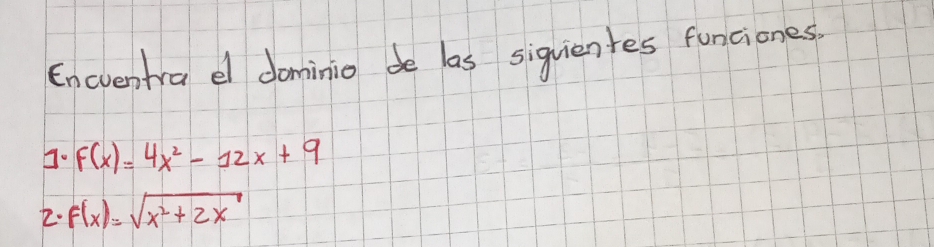 Encuentra el dominio de las siguientes funciones.
1. f(x) = 4x² - 12x + 9
2. f(x) = √x² + 2x